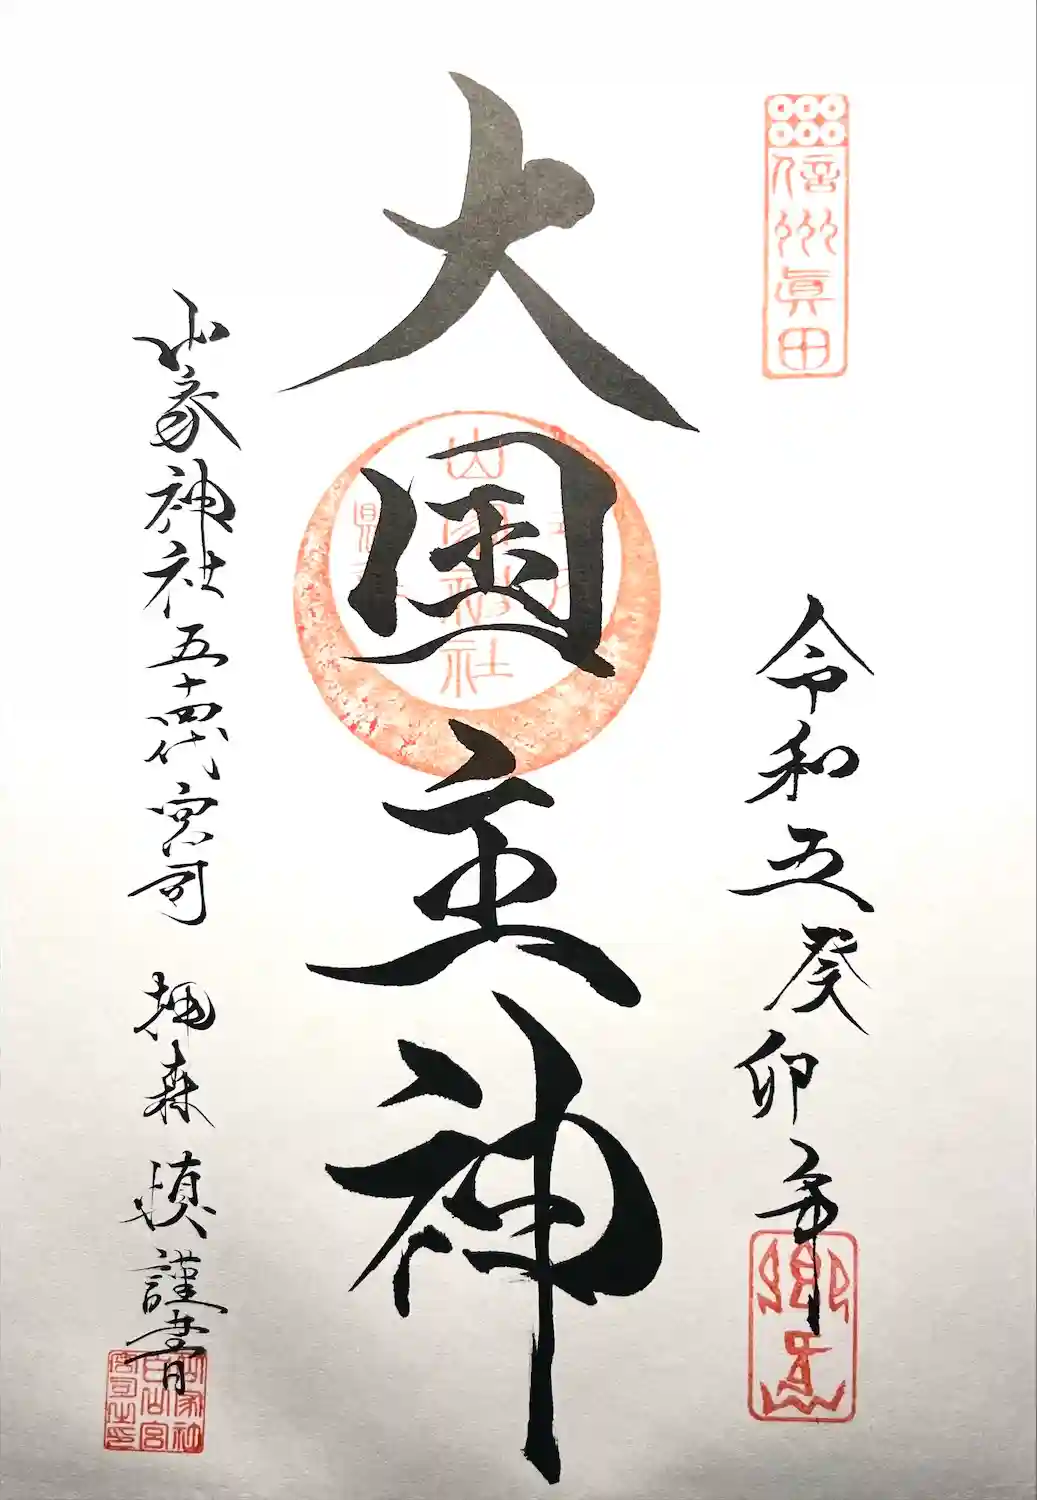 信州眞田
令和五癸卯年
大国主神
山家神社
山家神社五十四代宮司 押森慎謹書